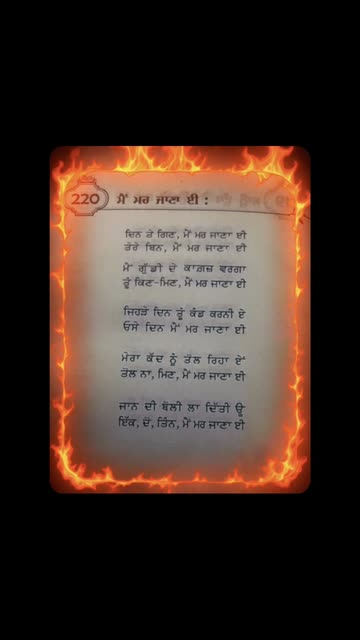 220 ਮੈਂ ਮਰ ਜਾਣਾ ਈ :
ਦਿਨ ਤੇ ਗਿਣ, ਮੈਂ ਮਰ ਜਾਣਾ ਈ
ਤੇਰੇ ਬਿਨ, ਮੈਂ ਮਰ ਜਾਣਾ ਈ
ਮੈਂ ਗੁੱਡੀ ਦੇ ਕਾਗਜ਼ ਵਰਗਾ
ਤੂੰ ਕਿਣ-ਮਿਣ, ਮੈਂ ਮਰ ਜਾਣਾ ਈ
ਜਿਹੜੇ ਦਿਨ ਤੂੰ ਕੰਡ ਕਰਨੀ ਏ
ਓਸੇ ਦਿਨ ਮੈਂ ਮਰ ਜਾਣਾ ਈ
ਮੇਰਾ ਕੱਦ ਨੂੰ ਤੋਲ ਰਿਹਾ ਏਂ
ਤੋਲ ਨਾ, ਮਿਣ, ਮੈਂ ਮਰ ਜਾਣਾ ਈ
ਜਾਨ ਦੀ ਬੋਲੀ ਲਾ ਦਿੱਤੀ ਊ
ਇੱਕ, ਦੋ, ਤਿੰਨ, ਮੈਂ ਮਰ ਜਾਣਾ ਈ